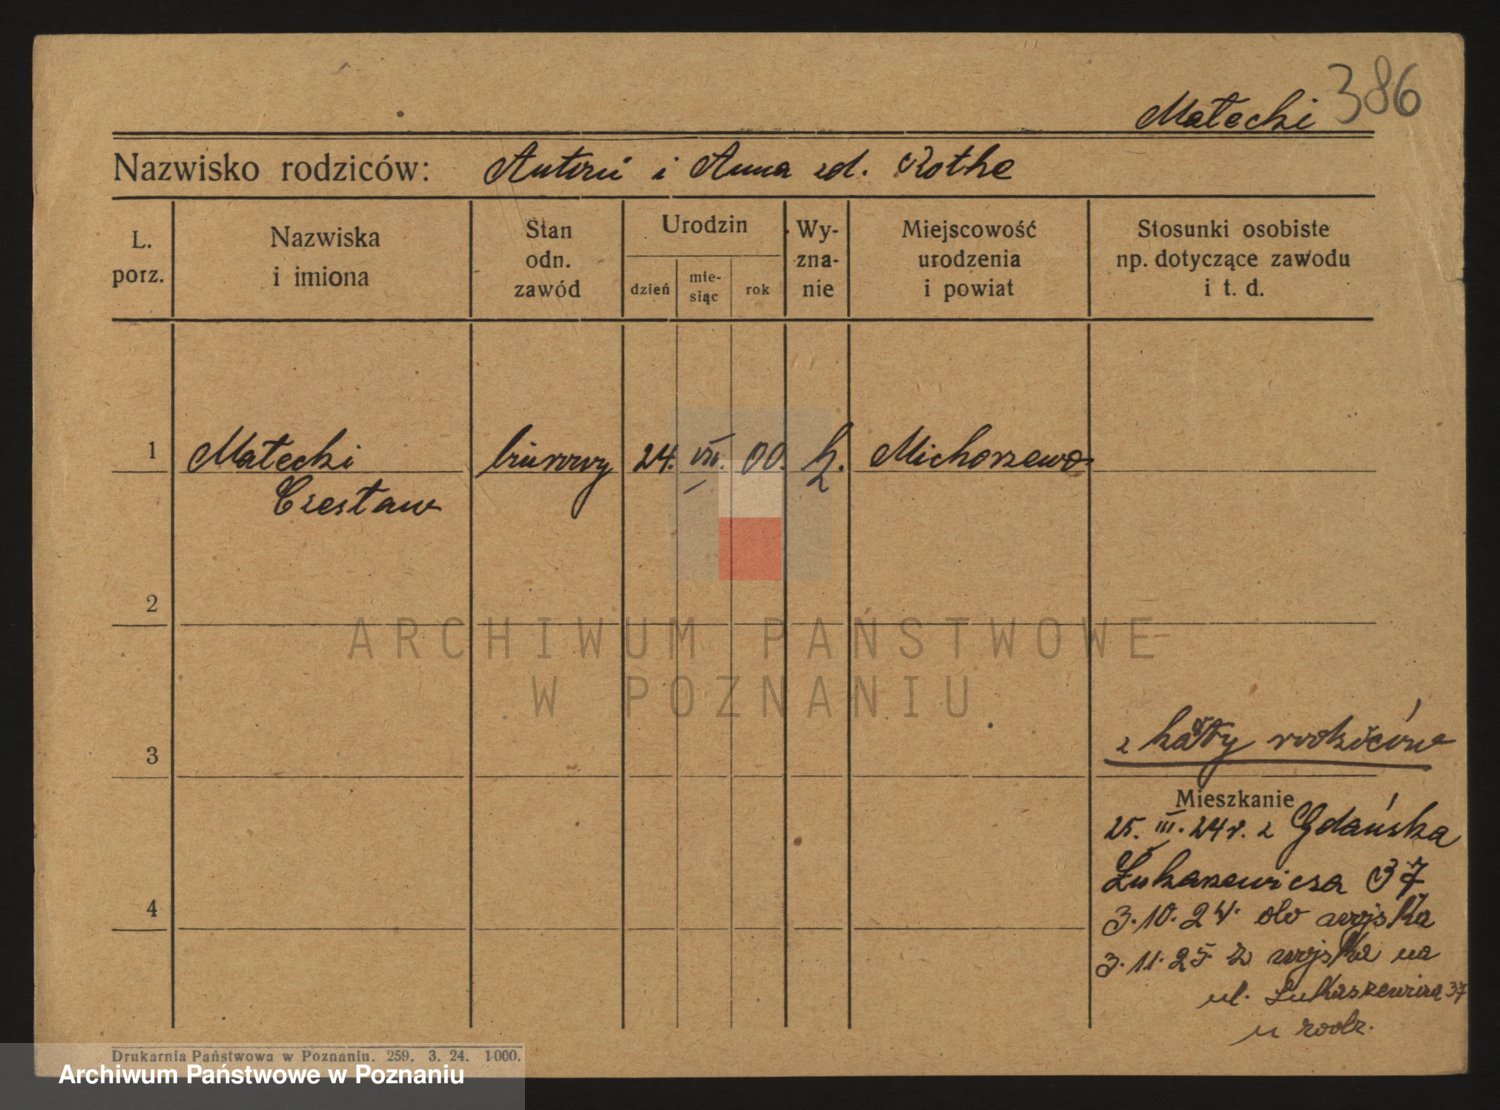 Małecki 386
Nazwisko rodziców: Antoni i Anna zd. Rothe
L. porz.
Nazwiska i imiona
Stan odn. zawód
Urodzin
dzień
mie- siąc
rok
Wy- zna- nie
Miejscowość urodzenia i powiat
Stosunki osobiste np. dotyczące zawodu i t. d.
1 Małecki biurowy 24. VII. 00. k. Michorzewo
Czesław
2
ARCHIWUM PAŃSTWOWE
W POZNANIU
3
z karty rodziców
Mieszkanie
25. III. 24 r. z Gdańska
Łukaszewicza 37
4
3.10.24. do wojska
3.11.25 z wojska na
ul. Łukaszewicza 37
u rodz.
Drukarnia Państwowa w Poznaniu. 259. 3. 24. 1000.
Archiwum Państwowe w Poznaniu